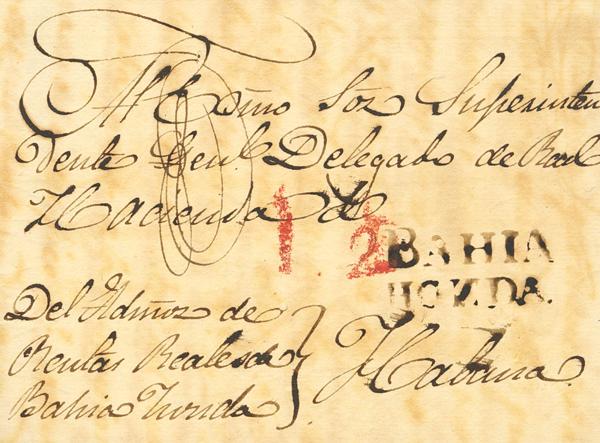 Al Exmo Sor Superinten
dente Genl. Delegado de Real
Hacienda &
1 2
BAHIA
HONDA.
Del Admor de
Rentas Reales de
Bahia Honda
Habana.